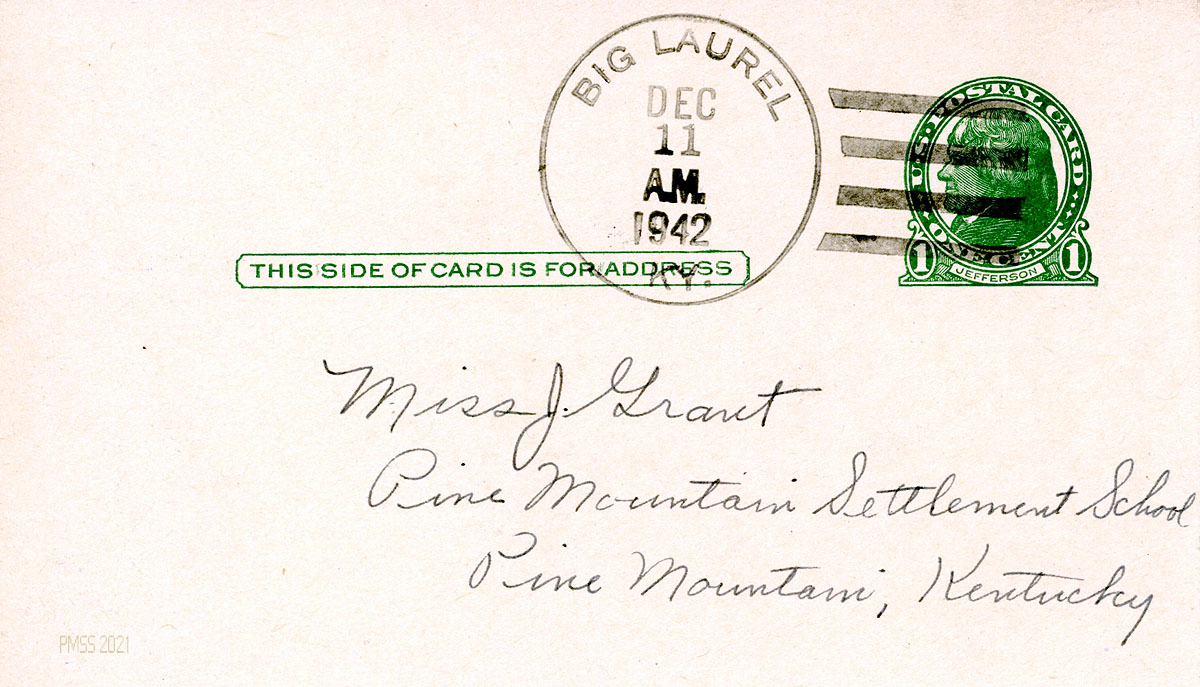 BIG LAUREL
DEC
11
A.M.
1942
KY.
U.S. POSTAL CARD
ONE CENT
1 JEFFERSON 1
THIS SIDE OF CARD IS FOR ADDRESS
Miss J. Grant
Pine Mountain Settlement School
Pine Mountain, Kentucky
PMSS 2021